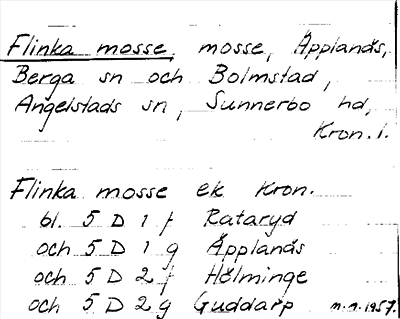 Flinka mosse, mosse, Äpplanäs,
Berga sn och Bolmstad,
Angelstads sn, Sunnerbo hd,
Kron. l.
Flinka mosse ek Kron.
bl. 5 D 1 f Rataryd
och 5 D 1 g Äpplanäs
och 5 D 2 f Hölminge
och 5 D 2 g Guddarp m.m. 1957.